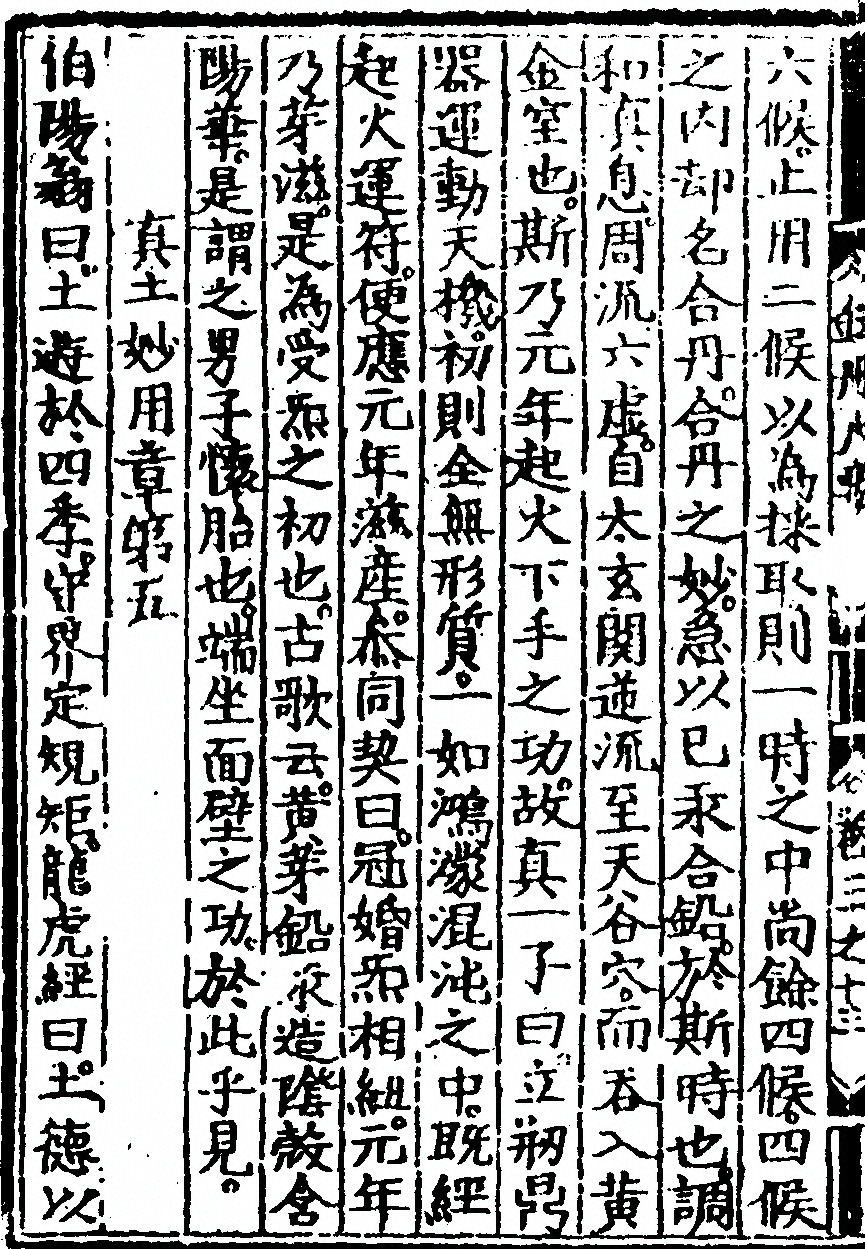 六候。止用二候以為採取則一時之中尚餘四候。四候
之内却名合丹。合丹之妙。急以巳汞合鉛。於斯時也。調
和真息。周流六虛。自太玄関逆流至天谷穴。而吞入黄
金室也。斯乃元年起火下手之功。故真一子曰。立剏鼎
器運動天機。初則全無形質。一如鴻濛混沌之中。既經
起火運符。便應元年滋産。叅同契曰。冠婚炁相紐。元年
乃芽滋。是為受炁之初也。古歌云。黄芽鉛汞造。陰殻含
陽華。是謂之男子懐胎也。端坐面壁之功。於此乎見。
真土妙用章第五
伯陽翁曰。土遊於四季。守界定規矩。龍虎經曰。土德以
卷三之十三